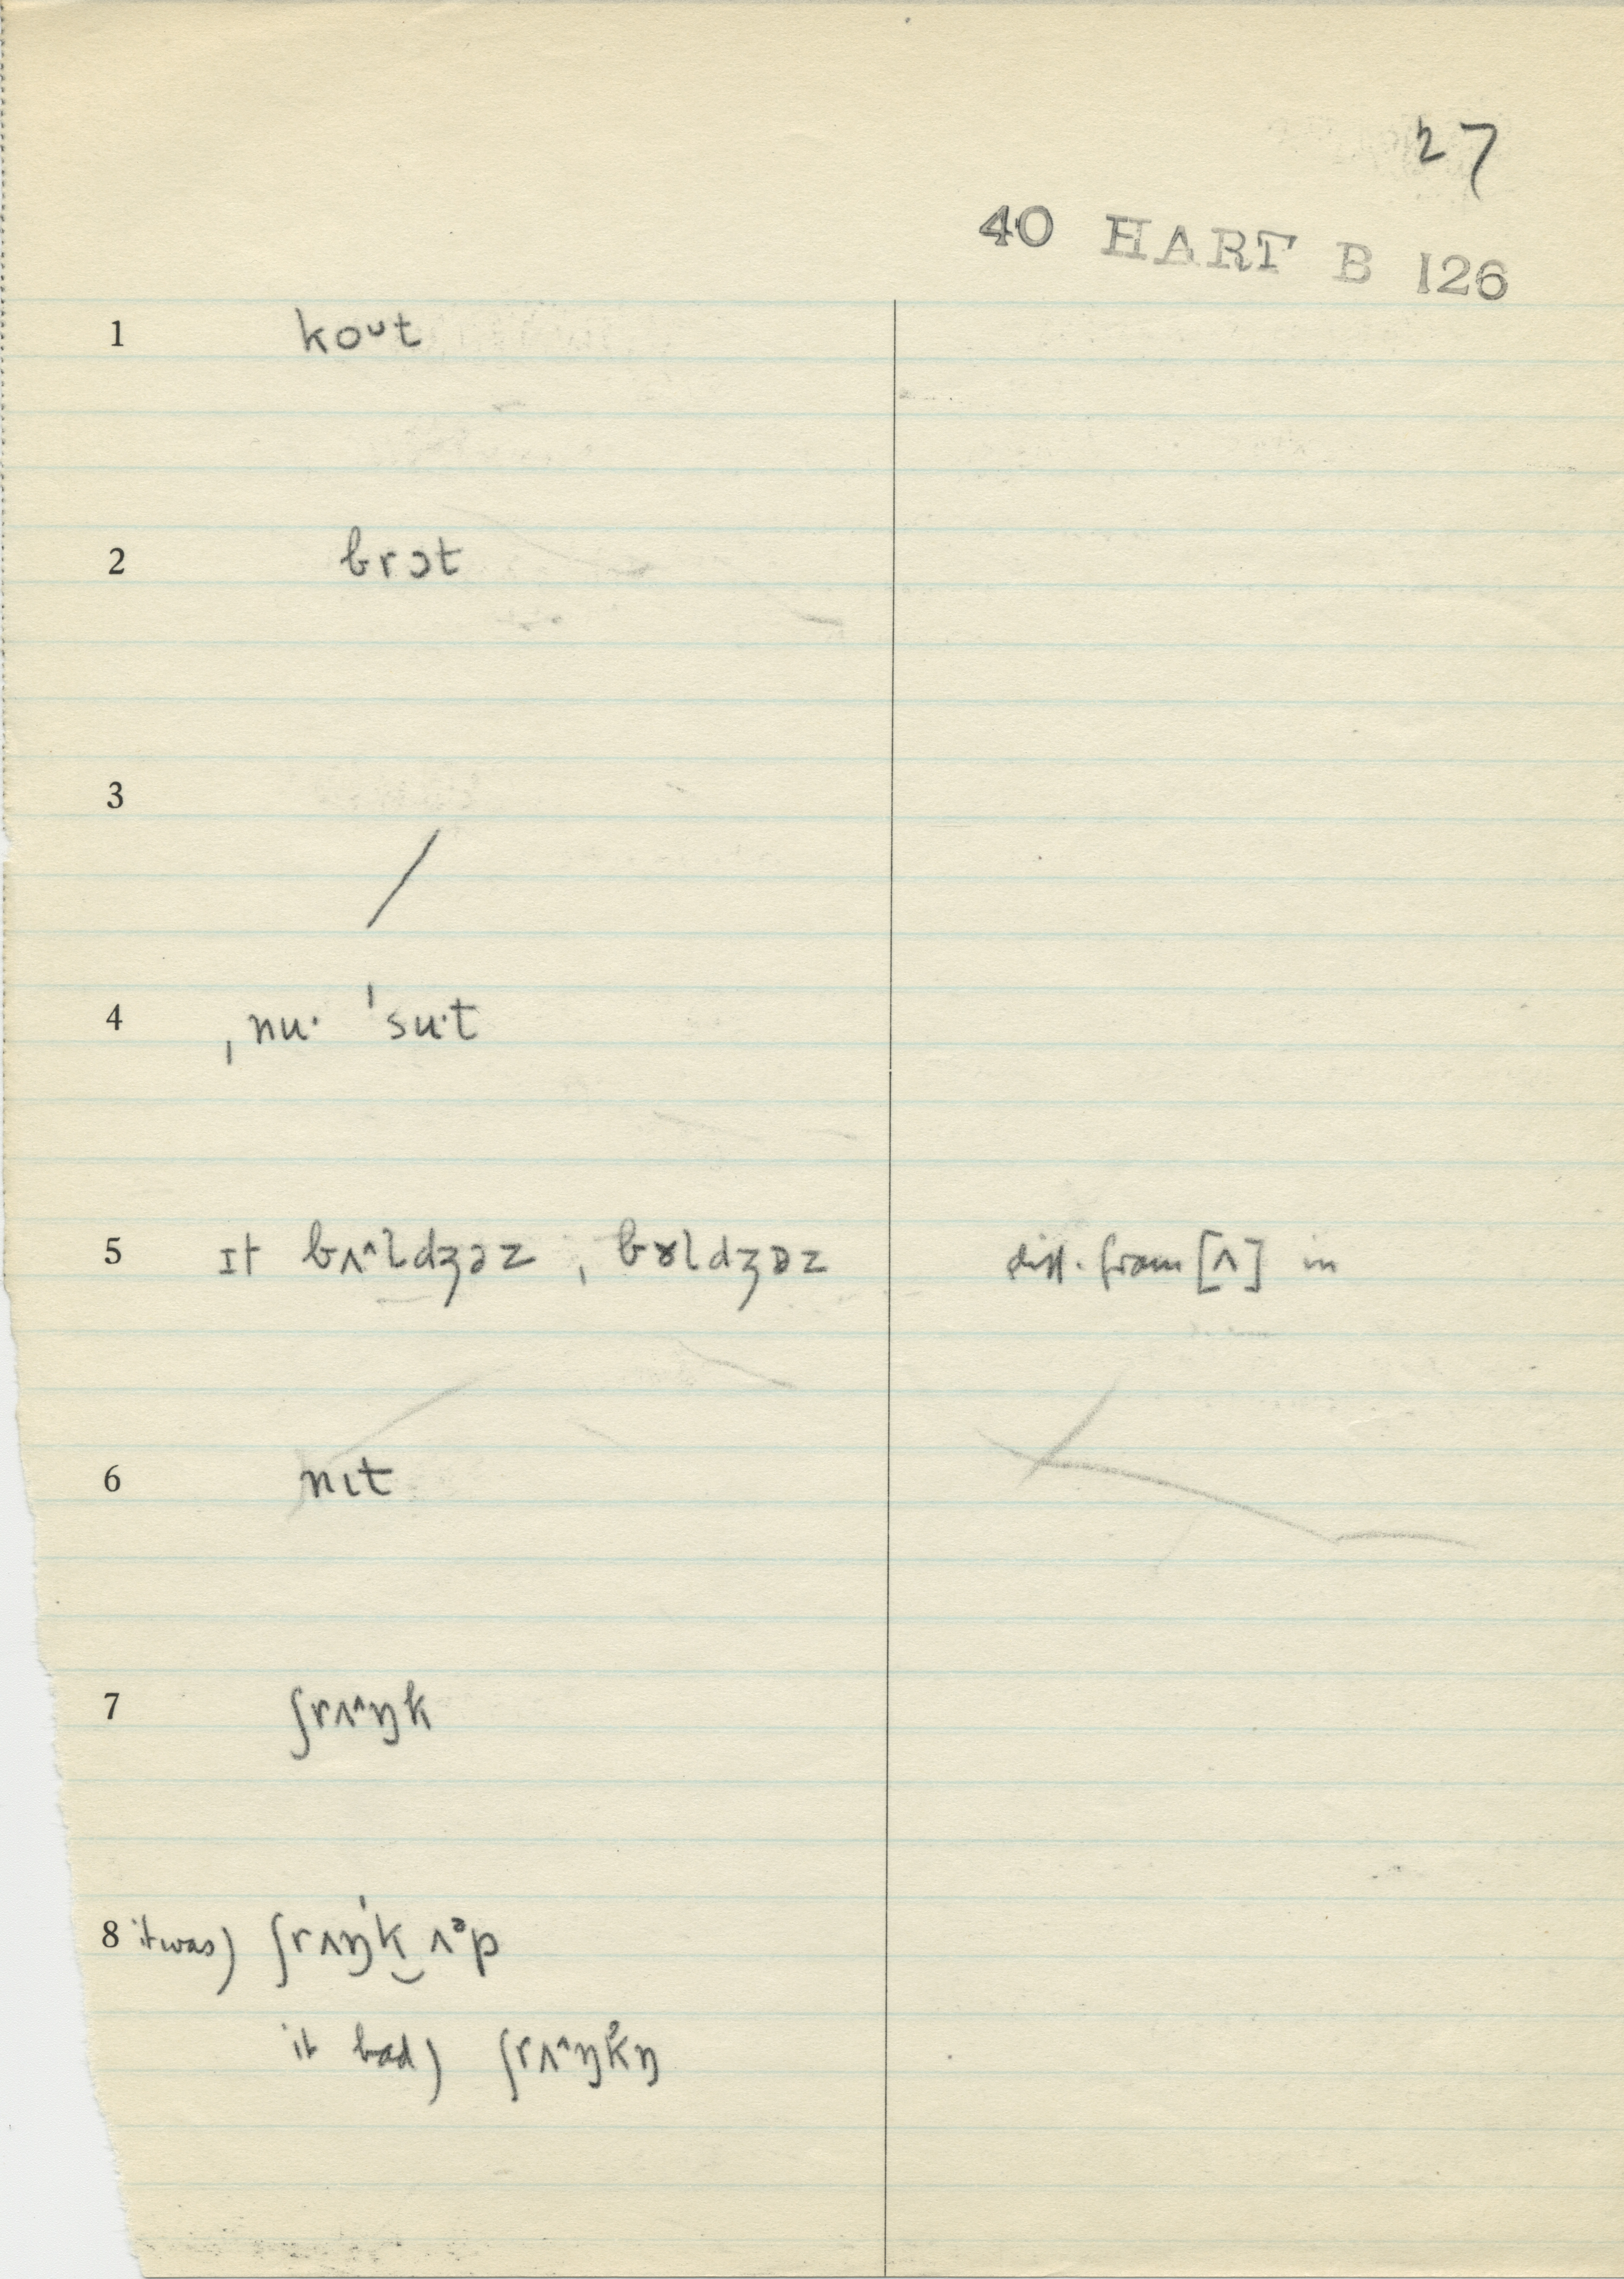 27
40 HART B 126
1 koᴜt
2 brɔt
3 /
4 ˌnu· ˈsu·t
5 ɪt bʌ^ldʒəz , bɤldʒəz diff. from [ʌ] in
6 nɪt
7 ʃrʌ^ŋk
8 it was) ʃrʌŋˈk‿ʌᵊp
it had) ʃrʌ^ŋkŋ